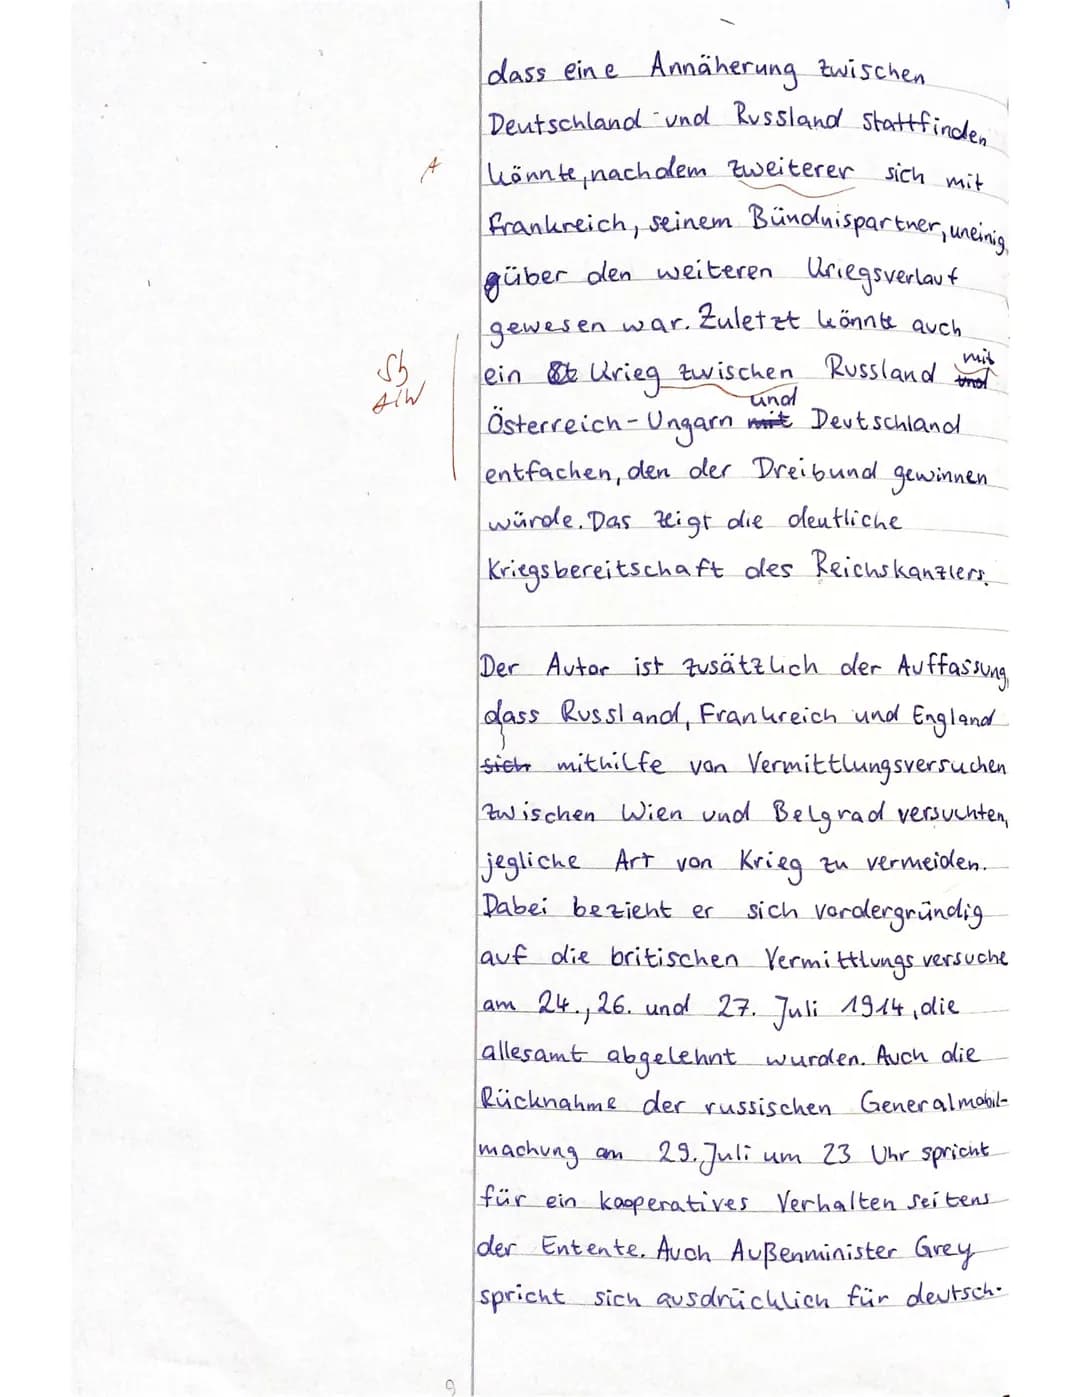 dass eine Annäherung zwischen
Deutschland und Russland stattfinden
A
könnte, nachdem zweiterer sich mit
Frankreich, seinem Bündnispartner, uneinig
über den weiteren Kriegsverlauf
gewesen war. Zuletzt könnte auch
Sb
mit
ein Krieg zwischen Russland und
AIW
und
Österreich-Ungarn mit Deutschland
entfachen, den der Dreibund gewinnen
würde. Das zeigt die deutliche
Kriegsbereitschaft des Reichskanzlers.
Der Autor ist zusätzlich der Auffassung,
dass Russland, Frankreich und England
sich mithilfe von Vermittlungsversuchen
zwischen Wien und Belgrad versuchten,
jegliche Art von Krieg zu vermeiden.
Dabei bezieht er sich vordergründig
auf die britischen Vermittlungsversuche
am 24., 26. und 27. Juli 1914, die
allesamt abgelehnt wurden. Auch die
Rücknahme der russischen Generalmobil-
machung am 29. Juli um 23 Uhr spricht
für ein kooperatives Verhalten seitens
der Entente. Auch Außenminister Grey
spricht sich ausdrücklich für deutsch-
9